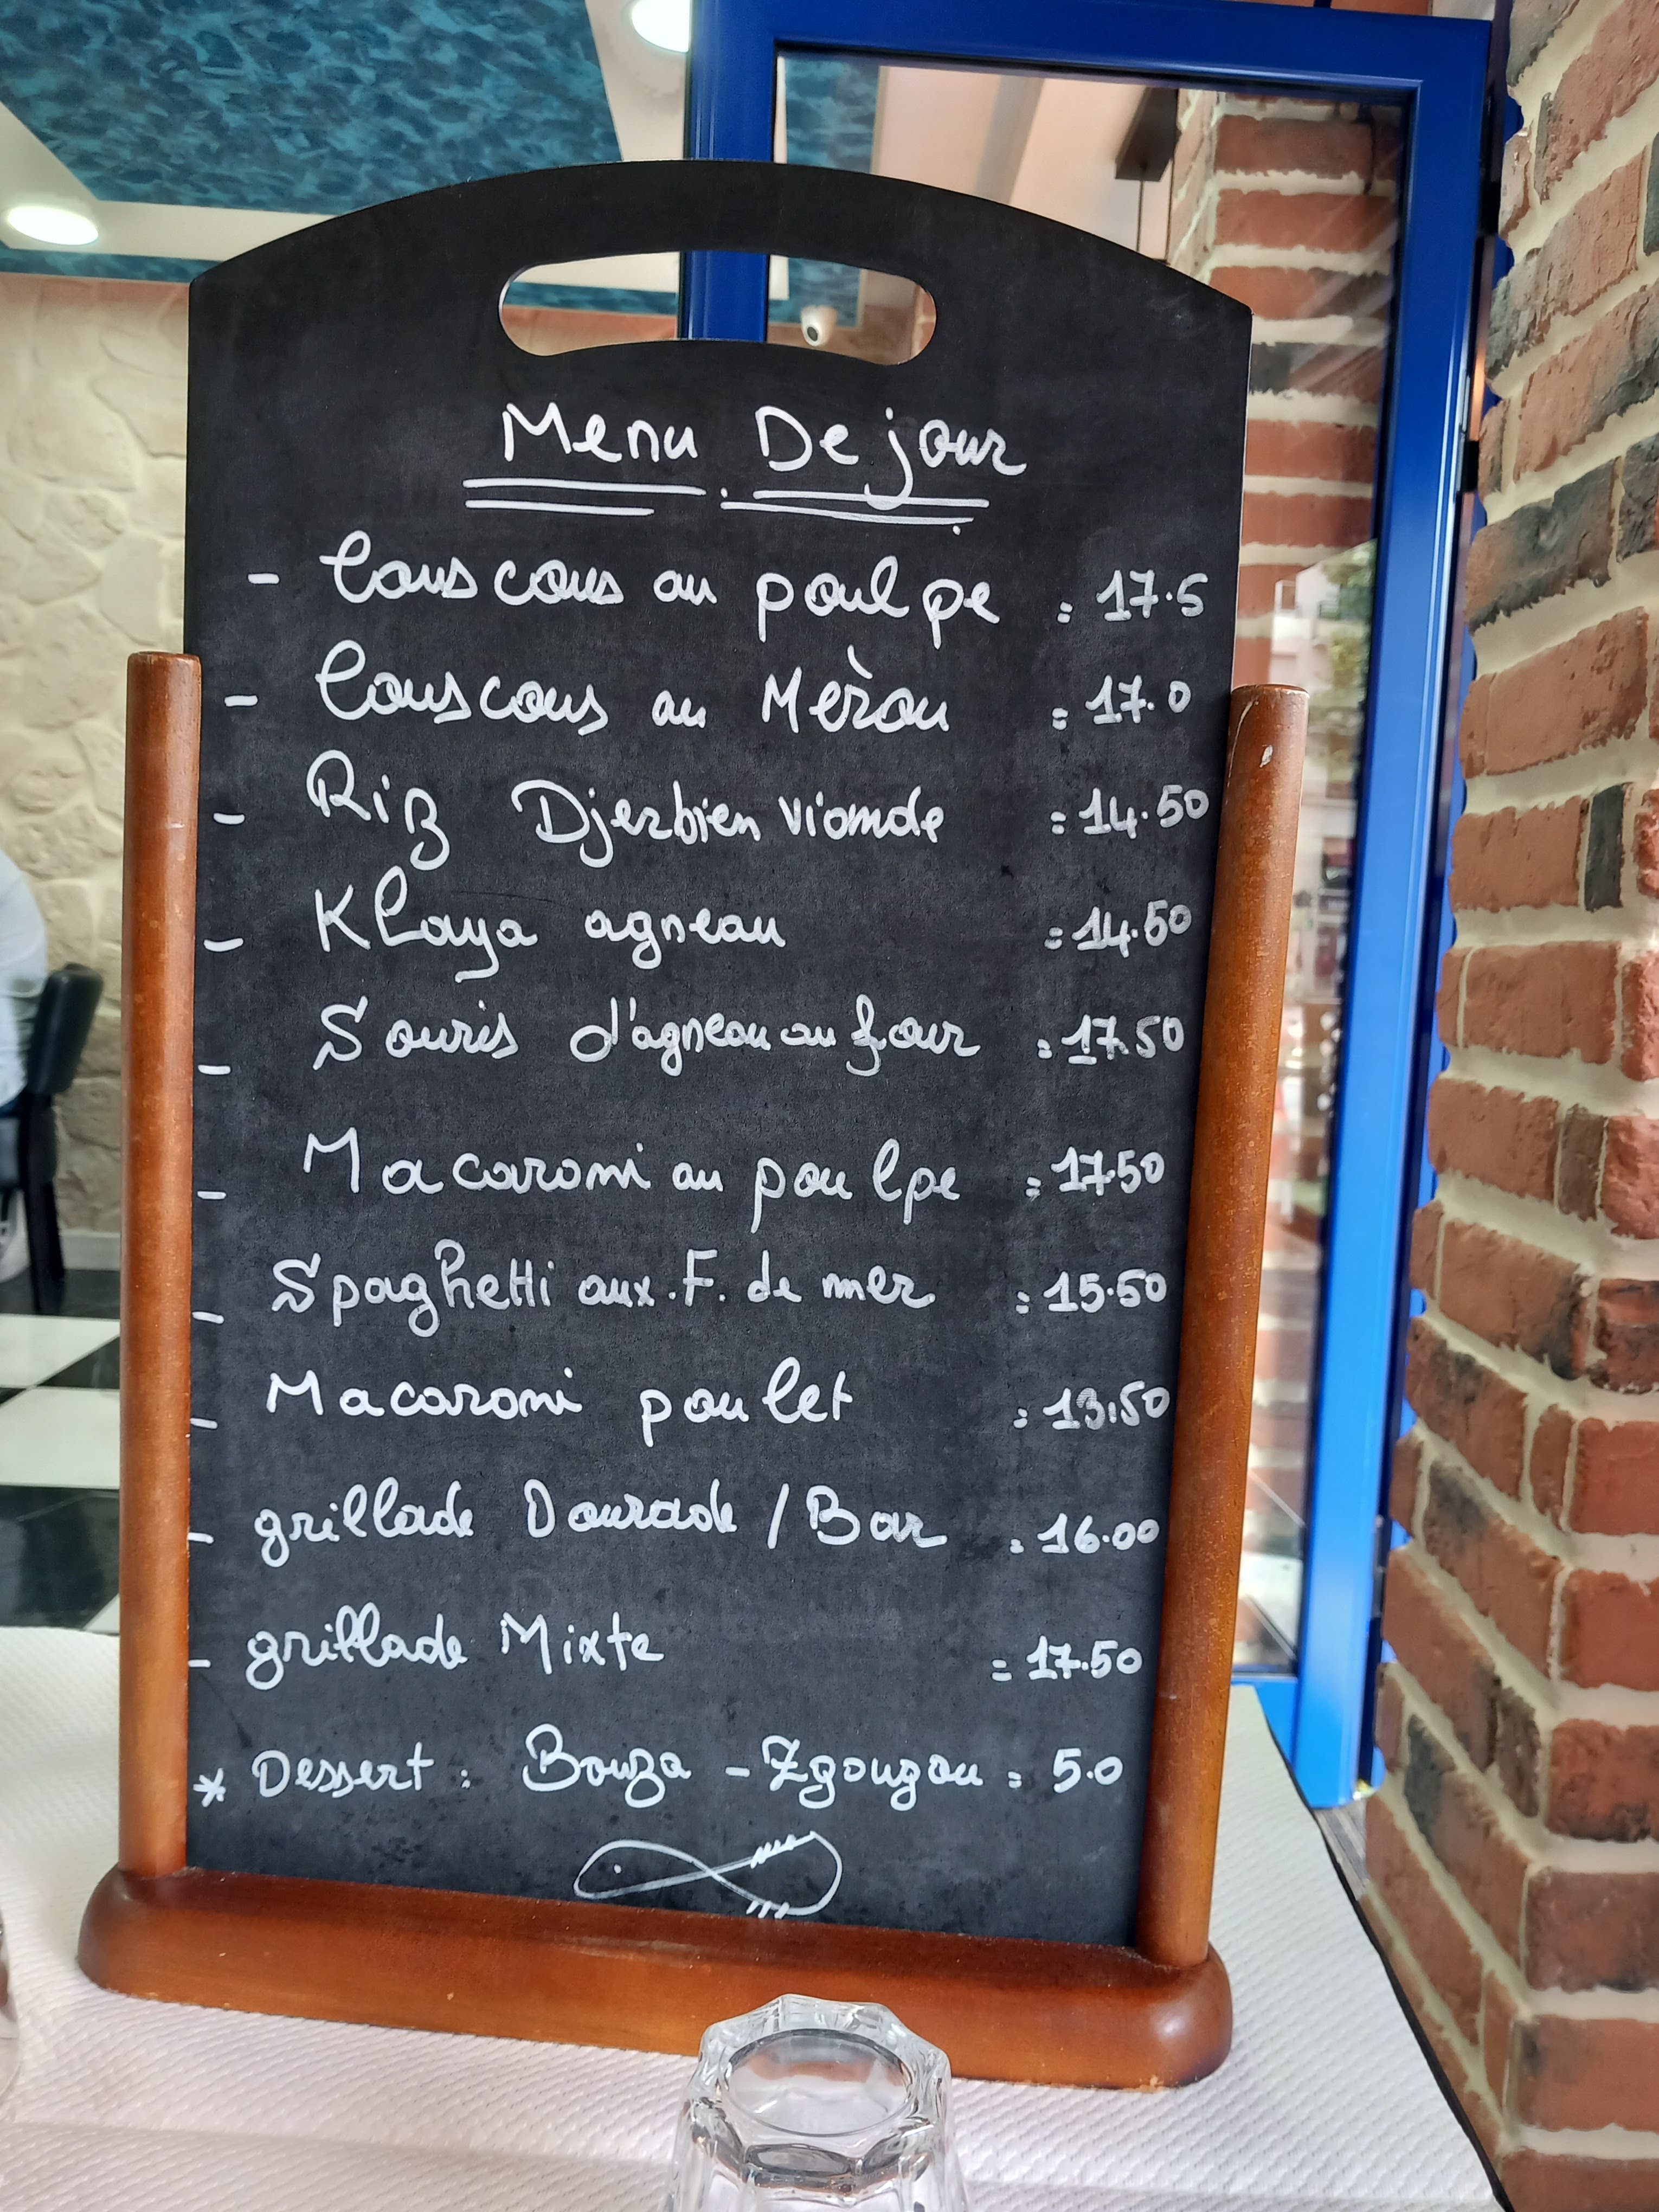 Menu De jour
- Couscous au poulpe = 17.5
- Couscous au Mèrou = 17.0
- Riz Djerbien viande = 14.50
- Klaya agneau = 14.50
- Souris d'agneau au four = 17.50
- Macaroni au poulpe = 17.50
- Spaghetti aux.F. de mer = 15.50
- Macaroni poulet = 13.50
- grillade Dourade / Bar = 16.00
- grillade Mixte = 17.50
* Dessert : Bouza - Zgougou = 5.0